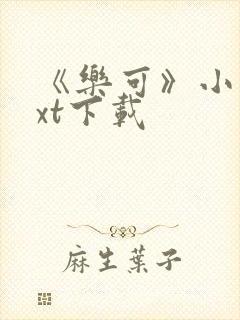 《樂可》小
xt下載
麻生葉子